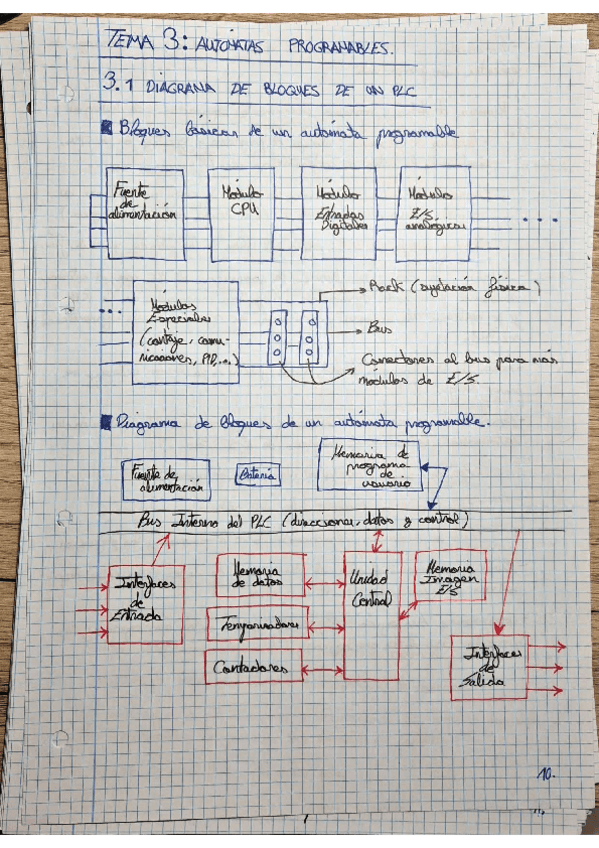 TEMA 3: AUTÓMATAS PROGRAMABLES.
3.1 DIAGRAMA DE BLOQUES DE UN PLC
Bloques básicos de un autómata programable
Fuente
de
alimentación
Módulo
CPU
Módulos
Entradas
Digitales
Módulos
E/S
analógicas
...
...
Módulos
Especiales
(contaje, comu-
nicaciones, PID,...)
Rack (sujetación física)
Bus
Conectores al bus para más
módulos de E/S.
Diagrama de bloques de un autómata programable.
Fuente de
alimentación
Batería
Memoria de
programa
de
usuario
Bus Interno del PLC (direcciones, datos y control)
Interfaces
de
Entrada
Memoria
de datos
Temporizadores
Contadores
Unidad
Control
Memoria
Imagen
E/S
Interfaces
de
Salida
10.